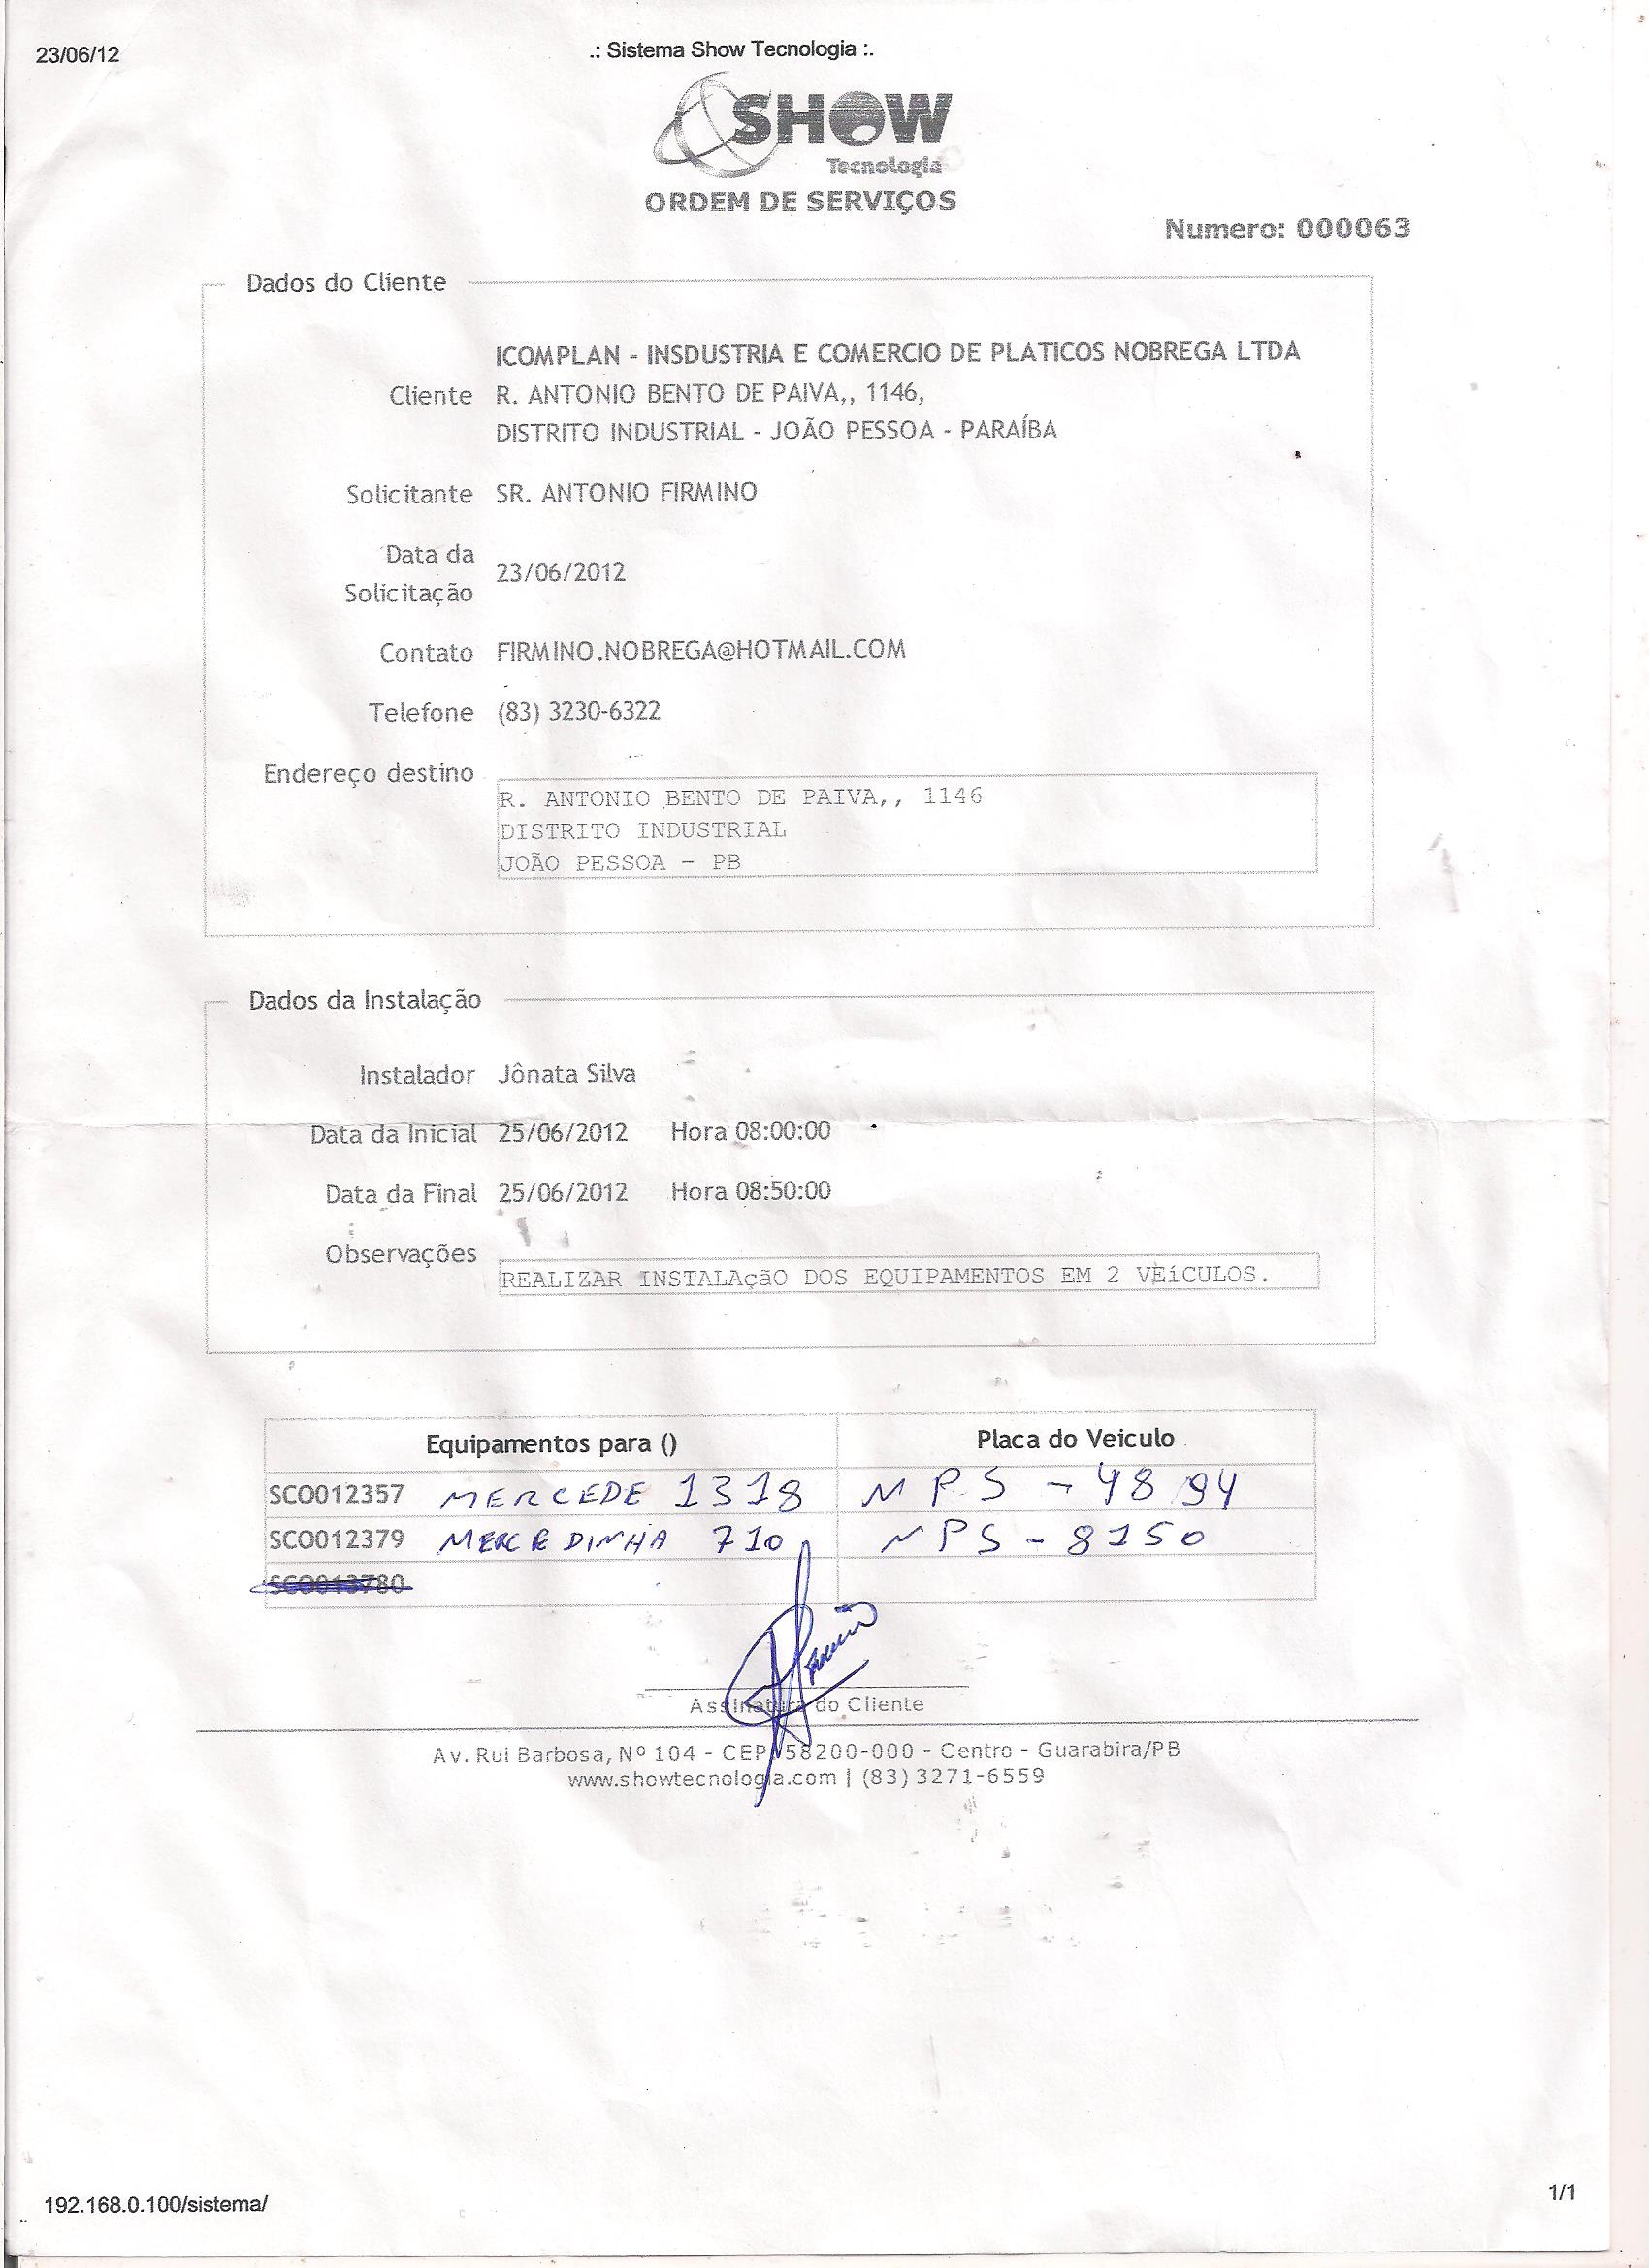 23/06/12
.: Sistema Show Tecnologia :.
SHOW
Tecnologia
ORDEM DE SERVIÇOS
Numero: 000063
Dados do Cliente
ICOMPLAN - INSDUSTRIA E COMERCIO DE PLATICOS NOBREGA LTDA
Cliente R. ANTONIO BENTO DE PAIVA,, 1146,
DISTRITO INDUSTRIAL - JOÃO PESSOA - PARAÍBA
Solicitante SR. ANTONIO FIRMINO
Data da
Solicitação 23/06/2012
Contato FIRMINO.NOBREGA@HOTMAIL.COM
Telefone (83) 3230-6322
Endereço destino
R. ANTONIO BENTO DE PAIVA,, 1146
DISTRITO INDUSTRIAL
JOÃO PESSOA - PB
Dados da Instalação
Instalador Jônata Silva
Data da Inicial 25/06/2012 Hora 08:00:00
Data da Final 25/06/2012 Hora 08:50:00
Observações
REALIZAR INSTALAçãO DOS EQUIPAMENTOS EM 2 VEíCULOS.
Equipamentos para () Placa do Veiculo
SCO012357 MERCEDE 1318 MPS - 4894
SCO012379 MERCEDINHA 710 NPS - 8150
SCO013780
Assinatura do Cliente
Av. Rui Barbosa, Nº 104 - CEP 58200-000 - Centro - Guarabira/PB
www.showtecnologia.com | (83) 3271-6559
192.168.0.100/sistema/
1/1